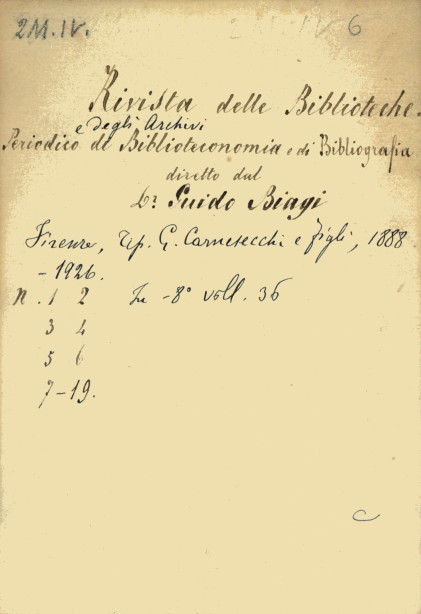 2M.IV. 6
Rivista delle Biblioteche.
e degli Archivi
Periodico di Biblioteconomia e di Bibliografia
diretto dal
Dr. Guido Biagi
Firenze, Tip. G. Carnesecchi e figli, 1888
-1926.
N. 1 2 In -8° voll. 36
3 4
5 6
7-19.
C